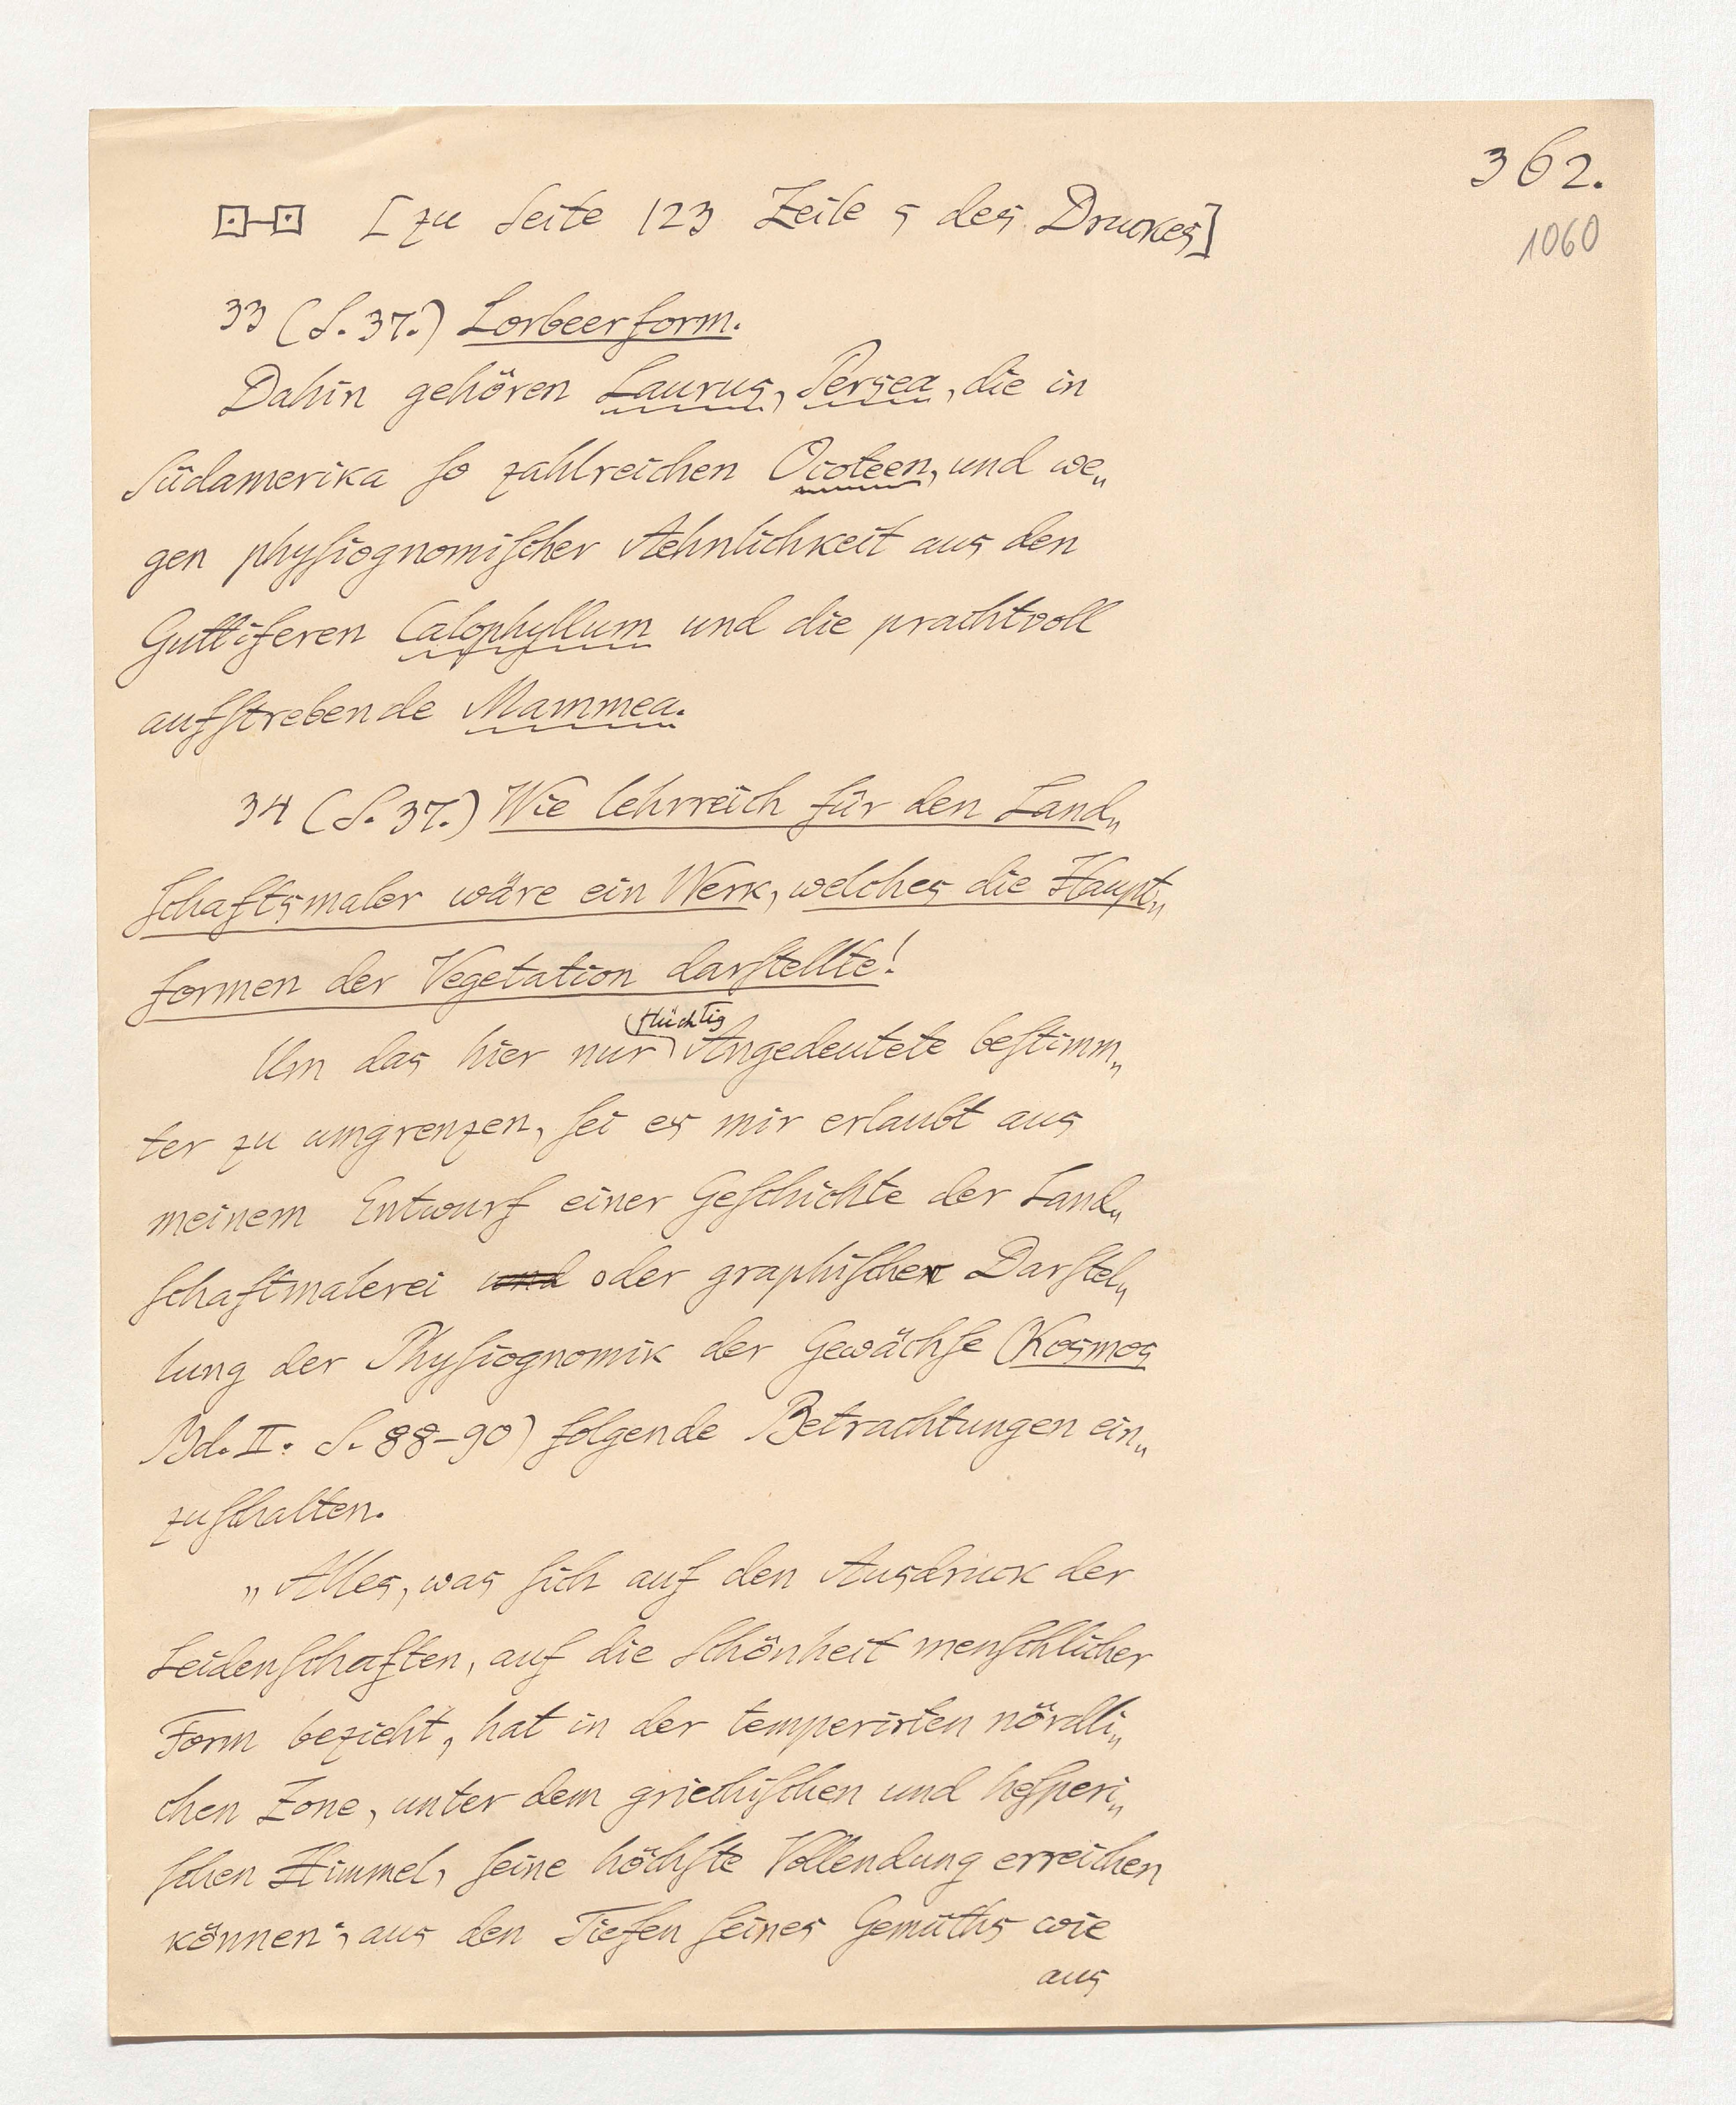 362.
1060
[zu Seite 123 Zeile 5 des Druckes]
33 (S. 37.) Lorbeerform.
Dahin gehören Laurus, Persea, die in
Südamerika so zahlreichen Ocoteen, und we„
gen physiognomischer Aehnlichkeit aus den
Guttiferen Calophyllum und die prachtvoll
aufstrebende Mammea.
34 (S. 37.) Wie lehrreich für den Land„
schaftsmaler wäre ein Werk, welches die Haupt„
formen der Vegetation darstellte!
flüchtig
Um das hier nur Angedeutete bestimm„
ter zu umgrenzen, sei es mir erlaubt aus
meinem Entwurf einer Geschichte der Land„
schaftmalerei und oder graphischen Darstel„
lung der Physiognomik der Gewächse (Kosmos
Bd. II. S. 88-90) folgende Betrachtungen ein„
zuschalten.
„Alles, was sich auf den Ausdruck der
Leidenschaften, auf die Schönheit menschlicher
Form bezieht, hat in der temperirten nördli„
chen Zone, unter dem griechischen und hesperi„
schen Himmel, seine höchste Vollendung erreichen
können; aus den Tiefen seines Gemüths wie
aus